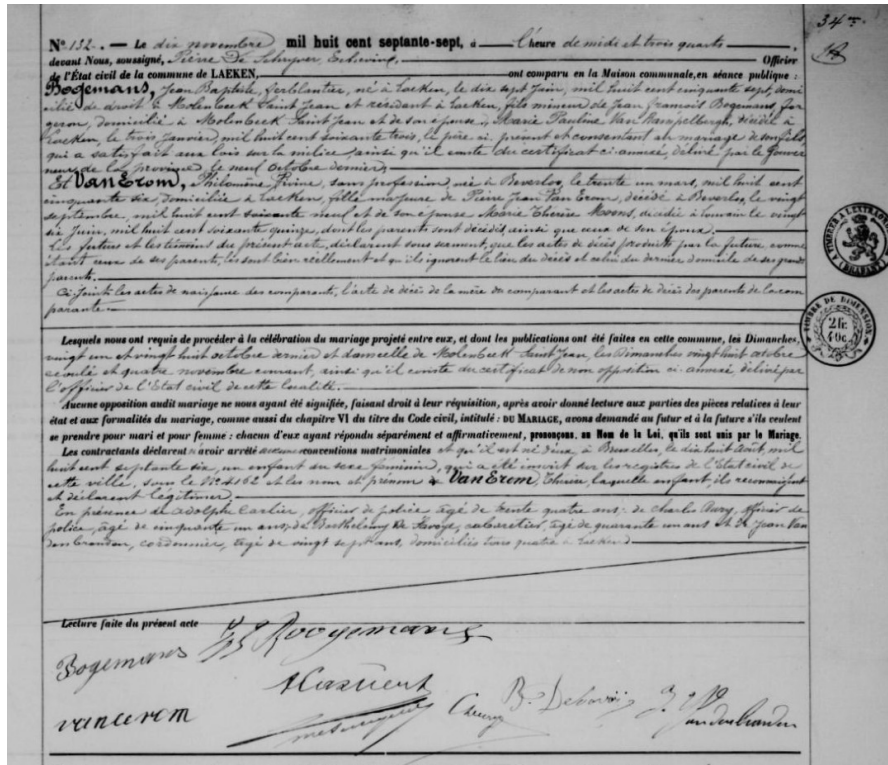 34
N° 132. — Le dix novembre mil huit cent septante-sept, à l'heure de midi et trois quarts,
devant Nous, soussigné, Pierre De Schryver, Echevin, Officier
de l'État civil de la commune de LAEKEN, ont comparu en la Maison communale, en séance publique :
Bogemans, Jean Baptiste, ferblantier, né à Laeken, le dix sept Juin, mil huit cent cinquante sept, domi
cilié de droit à Molenbeek Saint Jean et résidant à Laeken, fils mineur de Jean François Bogemans, for
geron, domicilié à Molenbeek Saint Jean et de son épouse, Marie Pauline Van Campelbergh, décédée à
Laeken, le trois Janvier, mil huit cent soixante trois, le père ici présent et consentant au mariage de son fils,
qui a satisfait aux lois sur la milice, ainsi qu'il conste du certificat ci-annexé, délivré par le Gouver
neur de la province, le neuf Octobre dernier,
Et Van Erom, Philomène Pirine, sans profession, née à Beverloo, le trente un mars, mil huit cent
cinquante six, domiciliée à Laeken, fille majeure de Pierre Jean Van Erom, décédé à Beverloo, le vingt
septembre, mil huit cent soixante neuf et de son épouse Marie Thérèse Moons, décédée à Louvain le vingt
six Juin, mil huit cent soixante quinze, dont les parents sont décédés, ainsi que ceux de son époux.
Les futurs et les témoins du présent acte, déclarent sous serment, que les actes de décès produits par la future comme
étant ceux de ses parents, les sont bien réellement et qu'ils ignorent le lieu du décès et celui du dernier domicile de ses grands
parents.
Ci-joint les actes de naissance des comparants, l'acte de décès de la mère du comparant et les actes de décès des parents de la com
parante.
TIMBRE DE DIMENSION
2fr.
40c.
Lesquels nous ont requis de procéder à la célébration du mariage projeté entre eux, et dont les publications ont été faites en cette commune, les Dimanches,
vingt un et vingt huit octobre dernier et dans celle de Molenbeek Saint Jean, les Dimanches vingt huit octobre
écoulé et quatre novembre courant, ainsi qu'il conste du certificat de non opposition ci-annexé délivré par
l'officier de l'Etat civil de cette localité.
Aucune opposition audit mariage ne nous ayant été signifiée, faisant droit à leur réquisition, après avoir donné lecture aux parties des pièces relatives à leur
état et aux formalités du mariage, comme aussi du chapitre VI du titre du Code civil, intitulé : DU MARIAGE, avons demandé au futur et à la future s'ils veulent
se prendre pour mari et pour femme : chacun d'eux ayant répondu séparément et affirmativement, prononçons, au Nom de la Loi, qu'ils sont unis par le Mariage.
Les contractants déclarent n'avoir arrêté aucunes conventions matrimoniales et qu'il est né d'eux, à Bruxelles, le dix huit Août, mil
huit cent septante six, un enfant du sexe féminin, qui a été inscrit sur les registres de l'Etat civil de
cette ville, sous le N° 4162 et les nom et prénom de Van Erom, Thérèse, laquelle enfant, ils reconnaissent
et déclarent légitimer.
En présence de Adolphe Carlier, officier de police, âgé de trente quatre ans, de Charles Aury, officier de
police, âgé de cinquante un ans, de Barthélemy De Havoye, cabaretier, âgé de quarante un ans et de Jean Van
den branden, cordonnier, âgé de vingt sept ans, domiciliés tous quatre à Laeken
Lecture faite du présent acte
Bogemans
vancerom
B. Dehavoÿ
Vandenbranden